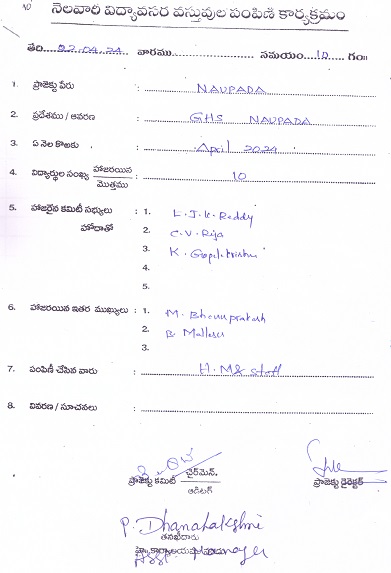 నెలవారి విద్యావసర వస్తువుల పంపిణీ కార్యక్రమం
తేది 22.04.24 వారము సమయం 10 గం॥
1. ప్రాజెక్టు పేరు : NAUPADA
2. ప్రదేశము / ఆవరణ : GHS NAUPADA
3. ఏ నెల కొఱకు : April 2024
4. విద్యార్థుల సంఖ్య హాజరయిన / మొత్తము : 10
5. హాజరైన కమిటీ సభ్యులు : 1. L.J.K. Reddy
హోదాతో 2. C.V. Raja
3. K. Gopala Krishna
4.
5.
6. హాజరయిన ఇతర ముఖ్యులు : 1. M. Bhanuprakash
2. B. Mallesu
3.
7. పంపిణీ చేసిన వారు : H.M & Staff
8. వివరణ / సూచనలు :
ప్రాజెక్టు కమిటీ ఛైర్మెన్. ప్రాజెక్టు డైరెక్టర్
ఆడిటర్
P. Dhanalakshmi
తనఖీదారు